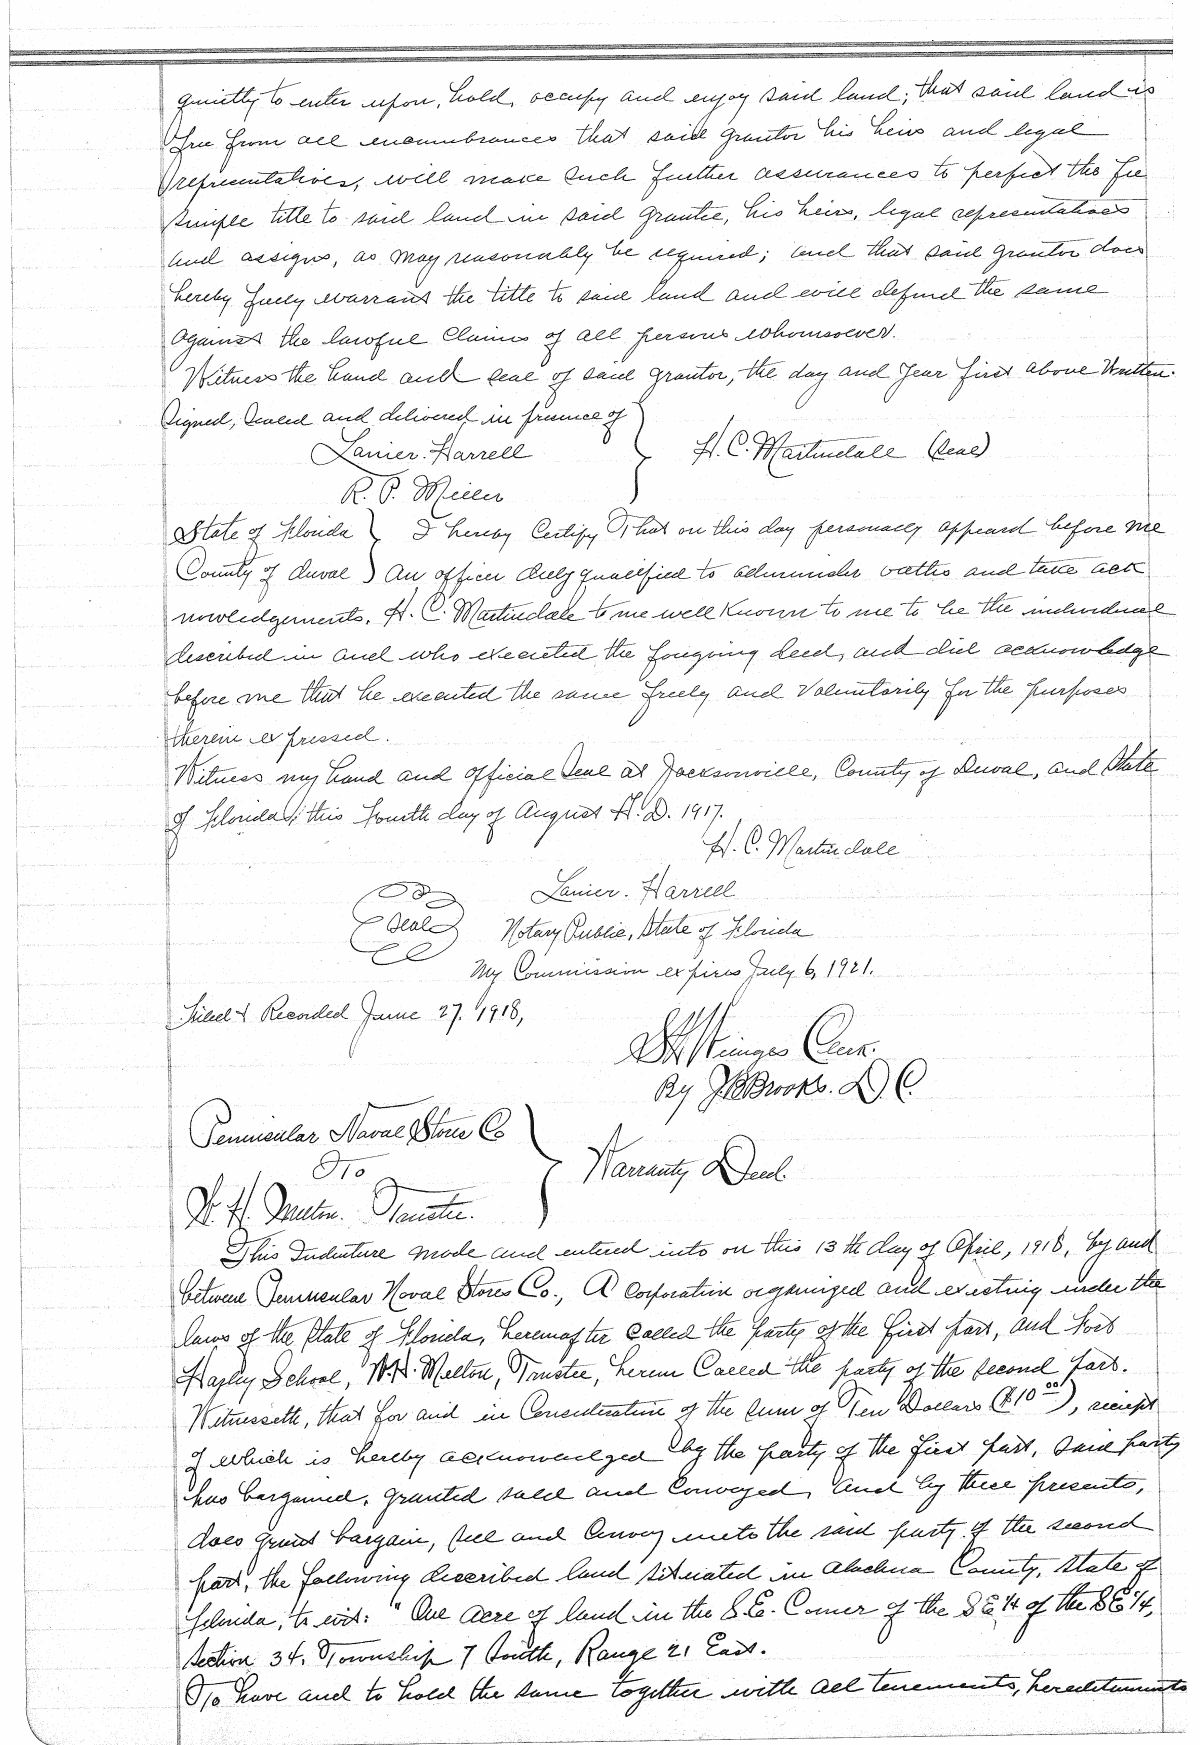 quietly to enter upon, hold, occupy and enjoy said land; that said land is
free from all encumbrances that said grantor his heirs and legal
representatives, will make such further assurances to perfect the fee
simple title to said land in said grantee, his heirs, legal representatives
and assigns, as may reasonably be required; and that said grantor does
hereby fully warrant the title to said land and will defend the same
against the lawful claims of all persons whomsoever.
Witness the hand and seal of said grantor, the day and year first above written.
Signed, sealed and delivered in presence of
Lanier Harrell } H. C. Martindale (Seal)
R. P. Miller
State of Florida } I hereby Certify That on this day personally appeared before me
County of Duval ) An officer duly qualified to administer oaths and take ack
nowledgements, H. C. Martindale to me well known to me to be the individual
described in and who executed the foregoing deed, and did acknowledge
before me that he executed the same freely and voluntarily for the purposes
therein expressed.
Witness my hand and official seal at Jacksonville, County of Duval, and State
of Florida, this Fourth day of August A. D. 1917.
H. C. Martindale
Lanier Harrell
Seal Notary Public, State of Florida
My Commission expires July 6, 1921.
Filed & Recorded June 27, 1918,
Wienges Clerk.
By J. B. Brooks. D. C.
Peninsular Naval Stores Co
To } Warranty Deed
W. H. Melton. Trustee.
This Indenture made and entered into on this 13th day of April, 1918, by and
between Peninsular Naval Stores Co., A corporation organized and existing under the
laws of the State of Florida, hereinafter called the party of the first part, and Fort
Harley School, W. H. Melton, Trustee, herein Called the party of the second part.
Witnesseth, that for and in Consideration of the sum of Ten Dollars ($10 00), receipt
of which is hereby acknowledged by the party of the first part, said party
has bargained, granted sold and conveyed, and by these presents,
does grant bargain, sell and convey unto the said party of the second
part, the following described land situated in Alachua County, State of
Florida, to wit: "One acre of land in the S.E. Corner of the SE 1/4 of the SE 1/4,
Section 34, Township 7 South, Range 21 East.
To have and to hold the same together with all tenements, hereditaments